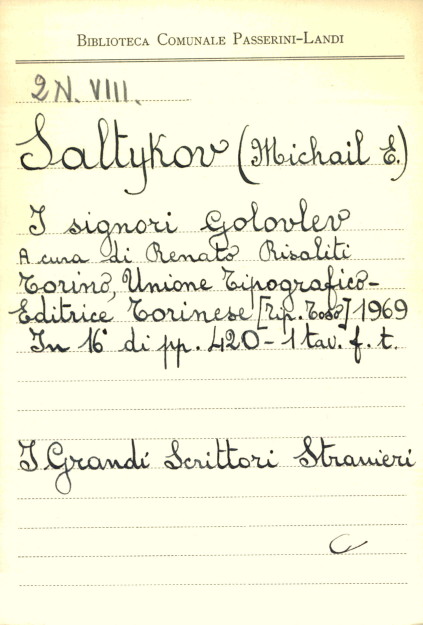 BIBLIOTECA COMUNALE PASSERINI-LANDI
2N. VIII.
Saltykov (Michail E.)
I signori Golovlev
A cura di Renato Risaliti
Torino, Unione Tipografico-
Editrice Torinese [Tip. Toso] 1969
In 16° di pp. 420 - 1 tav. f. t.
I Grandi Scrittori Stranieri
C